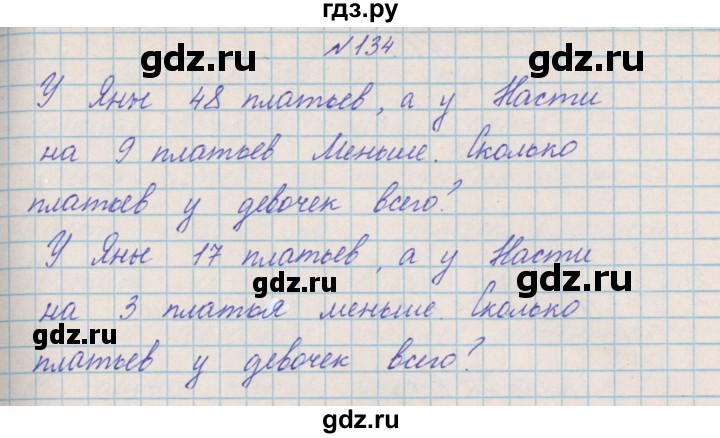 гдз.ру
№134.
gdz.ru gdz.ru
У Яны 48 платьев, а у Насти
на 9 платьев меньше. Сколько
gdz.ru gdz.ru
платьев у девочек всего?
У Яны 17 платьев, а у Насти
gdz.ru gdz.ru
на 3 платья меньше. Сколько
gdz.ru
платьев у девочек всего?
gdz.ru gdz.ru
gdz.ru